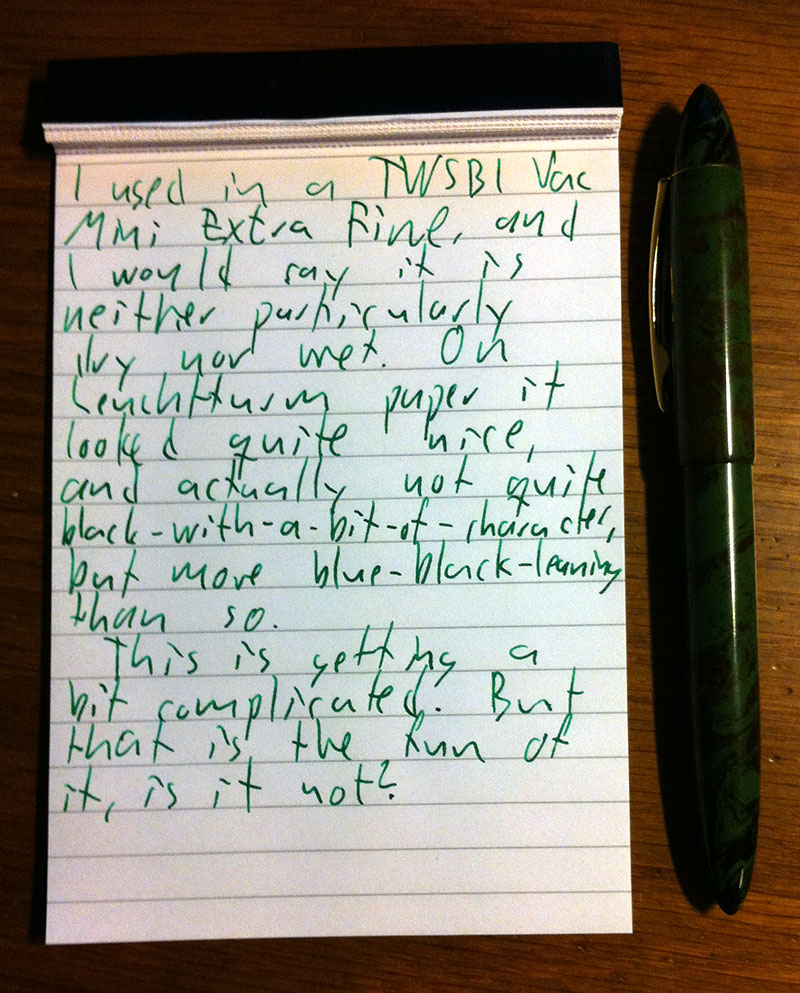 I used in a TWSBI Vac
Mini Extra Fine, and
I would say it is
neither particularly
dry nor wet. On
Leuchtturm paper it
looked quite nice,
and actually not quite
black-with-a-bit-of-character,
but more blue-black-leaning
than so.
This is getting a
bit complicated. But
that is the fun of
it, is it not?